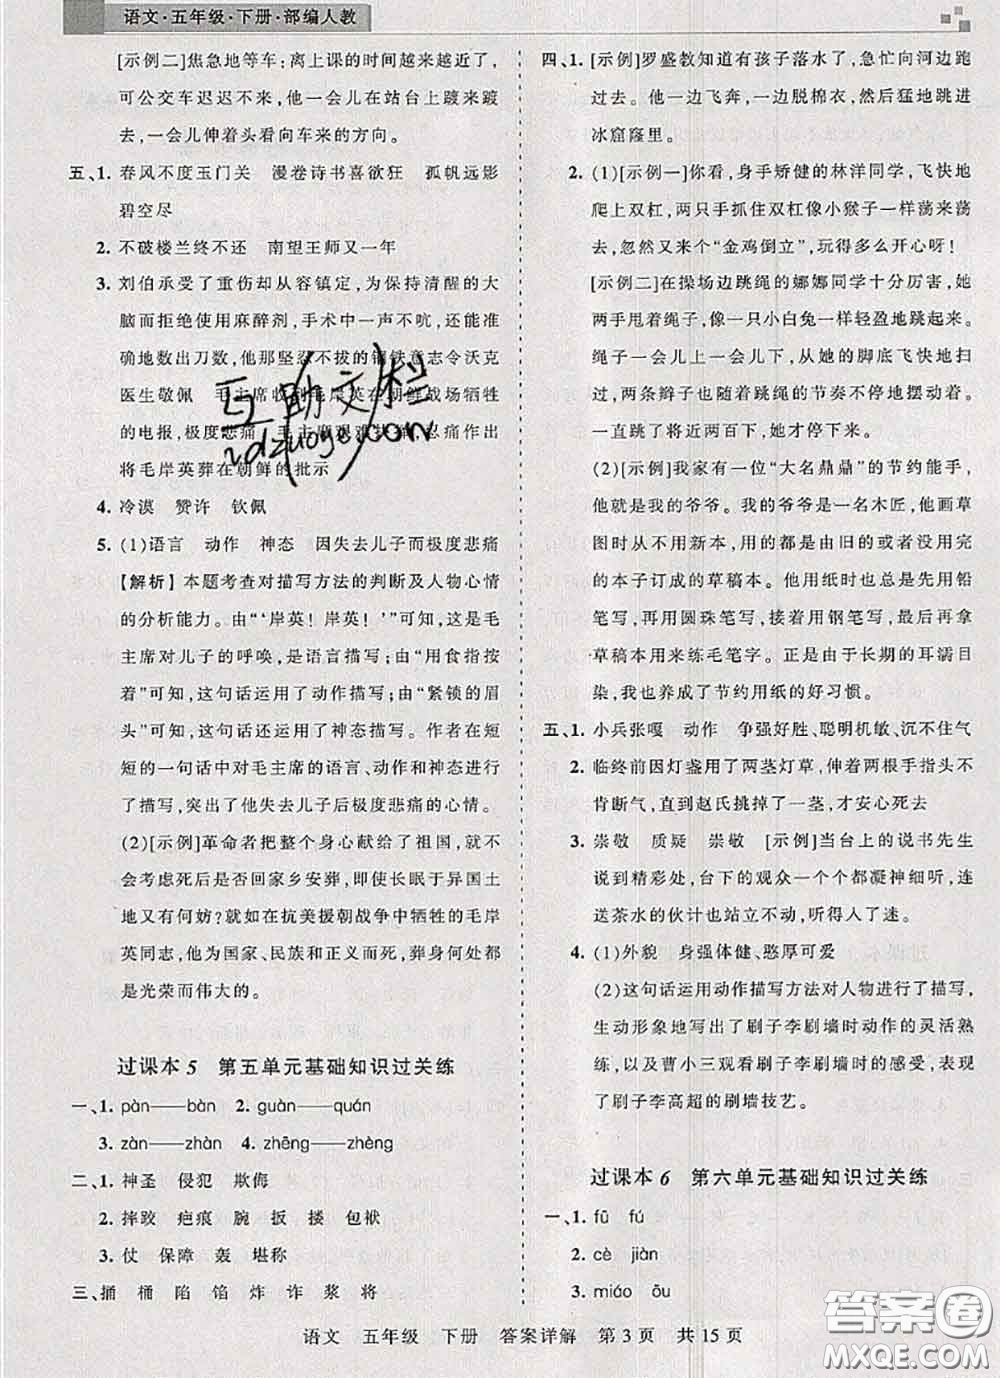 语文·五年级·下册·部编人教
[示例二]焦急地等车:离上课的时间越来越近了,
可公交车迟迟不来,他一会儿在站台上踱来踱
去,一会儿伸着头看向车来的方向。
五、1. 春风不度玉门关 漫卷诗书喜欲狂 孤帆远影
碧空尽
2. 不破楼兰终不还 南望王师又一年
3. 刘伯承受了重伤却从容镇定,为保持清醒的大
脑而拒绝使用麻醉剂,手术中一声不吭,还能准
确地数出刀数,他那坚忍不拔的钢铁意志令沃克
医生敬佩 毛主席收到毛岸英在朝鲜战场牺牲
的电报,极度悲痛 毛主席艰难抉择,忍痛作出
将毛岸英葬在朝鲜的批示
4. 冷漠 赞许 钦佩
5. (1)语言 动作 神态 因失去儿子而极度悲痛
【解析】本题考查对描写方法的判断及人物心情
的分析能力。由“‘岸英!岸英!’”可知,这是毛
主席对儿子的呼唤,是语言描写;由“用食指按
着”可知,这句话运用了动作描写;由“紧锁的眉
头”可知,这句话还运用了神态描写。作者在短
短的一句话中对毛主席的语言、动作和神态进行
了描写,突出了他失去儿子后极度悲痛的心情。
(2)[示例]革命者把整个身心献给了祖国,就不
会考虑死后是否回家乡安葬,即便长眠于异国土
地又有何妨?就如在抗美援朝战争中牺牲的毛岸
英同志,他为国家、民族和正义而死,葬身何处都
是光荣而伟大的。
过课本5 第五单元基础知识过关练
一、1. pàn——bàn 2. guàn——quán
3. zàn——zhàn 4. zhēng——zhèng
二、1. 神圣 侵犯 欺侮
2. 摔跤 疤痕 腕 扳 搂 包袱
3. 仗 保障 轰 堪称
三、捅 桶 陷 馅 炸 诈 浆 将
四、1. [示例]罗盛教知道有孩子落水了,急忙向河边跑
过去。他一边飞奔,一边脱棉衣,然后猛地跳进
冰窟窿里。
2. (1)[示例一]你看,身手矫健的林洋同学,飞快地
爬上双杠,两只手抓住双杠像小猴子一样荡来荡
去,忽然又来个“金鸡倒立”,玩得多么开心呀!
[示例二]在操场边跳绳的娜娜同学十分厉害,她
两手甩着绳子,像一只小白兔一样轻盈地跳起来。
绳子一会儿上一会儿下,从她的脚底飞快地扫
过,两条辫子也随着跳绳的节奏不停地摆动着。
一直跳了将近两百下,她才停下来。
(2)[示例]我家有一位“大名鼎鼎”的节约能手,
他就是我的爷爷。我的爷爷是一名木匠,他画草
图时从不用新本,用的都是由旧的或者没用完的
的本子订成的草稿本。他用纸时也总是先用铅
笔写,再用圆珠笔写,接着用钢笔写,最后再拿
草稿本用来练毛笔字。正是由于长期的耳濡目
染,我也养成了节约用纸的好习惯。
五、1. 小兵张嘎 动作 争强好胜、聪明机敏、沉不住气
2. 临终前因灯盏用了两茎灯草,伸着两根手指头不
肯断气,直到赵氏挑掉了一茎,才安心死去
3. 崇敬 质疑 崇敬 [示例]当台上的说书先生
说到精彩处,台下的观众一个个都凝神细听,连
送茶水的伙计也站立不动,听得入了迷。
4. (1)外貌 身强体健、憨厚可爱
(2)这句话运用动作描写方法对人物进行了描写,
生动形象地写出了刷子李刷墙时动作的灵活熟
练,以及曹小三观看刷子李刷墙时的感受,表现
了刷子李高超的刷墙技艺。
过课本6 第六单元基础知识过关练
一、1. fū fú
2. cè jiàn
3. miáo ōu
语文 五年级 下册 答案详解 第3页 共15页
互助文栏
答案圈
MXQE.COM